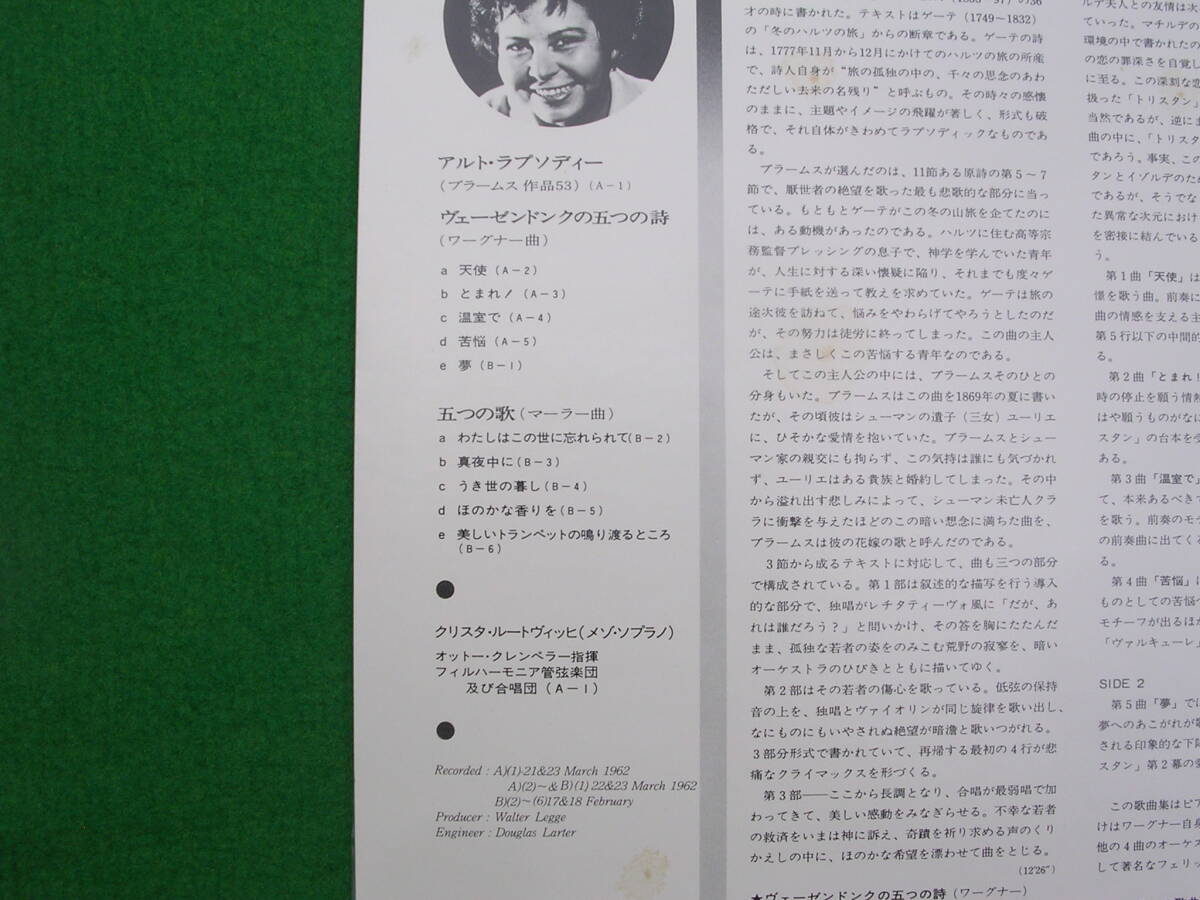 アルト・ラプソディー
(ブラームス 作品53) (A-1)
ヴェーゼンドンクの五つの詩
(ワーグナー曲)
a 天使 (A-2)
b とまれ! (A-3)
c 温室で (A-4)
d 苦悩 (A-5)
e 夢 (B-1)
五つの歌 (マーラー曲)
a わたしはこの世に忘れられて(B-2)
b 真夜中に (B-3)
c うき世の暮し (B-4)
d ほのかな香りを (B-5)
e 美しいトランペットの鳴り渡るところ
(B-6)
●
クリスタ・ルートヴィッヒ(メゾ・ソプラノ)
オットー・クレンペラー指揮
フィルハーモニア管弦楽団
及び合唱団 (A-1)
●
Recorded : A)(1)-21&23 March 1962
A)(2)~&B)(1) 22&23 March 1962
B)(2)~(6)17&18 February
Producer : Walter Legge
Engineer : Douglas Larter
の36
才の時に書かれた。テキストはゲーテ (1749~1832)
の「冬のハルツの旅」からの断章である。ゲーテの詩
は、1777年11月から12月にかけてのハルツの旅の所産
で、詩人自身が“旅の孤独の中の、千々の思念のあわ
ただしい去来の名残り”と呼ぶもの。その時々の感懐
のままに、主題やイメージの飛躍が著しく、形式も破
格で、それ自体がきわめてラプソディックなものであ
る。
ブラームスが選んだのは、11節ある原詩の第5~7
節で、厭世者の絶望を歌った最も悲歌的な部分に当っ
ている。もともとゲーテがこの冬の山旅を企てたのに
は、ある動機があったのである。ハルツに住む高等宗
務監督プレッシングの息子で、神学を学んでいた青年
が、人生に対する深い懐疑に陥り、それまでも度々ゲ
ーテに手紙を送って教えを求めていた。ゲーテは旅の
途次彼を訪ねて、悩みをやわらげてやろうとしたのだ
が、その努力は徒労に終ってしまった。この曲の主人
公は、まさしくこの苦悩する青年なのである。
そしてこの主人公の中には、ブラームスそのひとの
分身もいた。ブラームスはこの曲を1869年の夏に書い
たが、その頃彼はシューマンの遺子(三女)ユーリエ
に、ひそかな愛情を抱いていた。ブラームスとシュー
マン家の親交にも拘らず、この気持は誰にも気づかれ
ず、ユーリエはある貴族と婚約してしまった。その中
から溢れ出す悲しみによって、シューマン未亡人クラ
ラに衝撃を与えたほどのこの暗い想念に満ちた曲を、
ブラームスは彼の花嫁の歌と呼んだのである。
3節から成るテキストに対応して、曲も三つの部分
で構成されている。第1部は叙述的な描写を行う導入
的な部分で、独唱がレチタティーヴォ風に「だが、あ
れは誰だろう?」と問いかけ、その答を胸にたたんだ
まま、孤独な若者の姿をのみこむ荒野の寂寥を、暗い
オーケストラのひびきとともに描いてゆく。
第2部はその若者の傷心を歌っている。低弦の保持
音の上を、独唱とヴァイオリンが同じ旋律を歌い出し、
なにものにもいやされぬ絶望が暗澹と歌いつがれる。
3部分形式で書かれていて、再帰する最初の4行が悲
痛なクライマックスを形づくる。
第3部――ここから長調となり、合唱が最弱唱で加
わってきて、美しい感動をみなぎらせる。不幸な若者
の救済をいまは神に訴え、奇蹟を祈り求める声のくり
かえしの中に、ほのかな希望を漂わせて曲をとじる。
(12'26")
★ヴェーゼンドンクの五つの詩 (ワーグナー)
ルデ夫人との友情は次
ていった。マチルデの
環境の中で書かれたの
の恋の罪深さを自覚し
に至る。この深刻な恋
扱った「トリスタン」
当然であるが、逆にま
曲の中に、「トリスタ
であろう。事実、この
タンとイゾルデのため
であるが、そうでな
た異常な次元におけ
を密接に結んでいる
う。
第1曲「天使」は
憬を歌う曲。前奏に
曲の情感を支える主
第5行以下の中間的
る。
第2曲「とまれ!
時の停止を願う情熱
はや願うものがなに
スタン」の台本を受
ある。
第3曲「温室で」
て、本来あるべきて
を歌う。前奏のモチ
の前奏曲に出てくる
る。
第4曲「苦悩」に
ものとしての苦悩へ
モチーフが出るほか
「ヴァルキューレ」
SIDE 2
第5曲「夢」では
夢へのあこがれが歌
される印象的な下降
スタン」第2幕の愛
この歌曲集はピア
けはワーグナー自身
他の4曲のオーケス
して著名なフェリッ